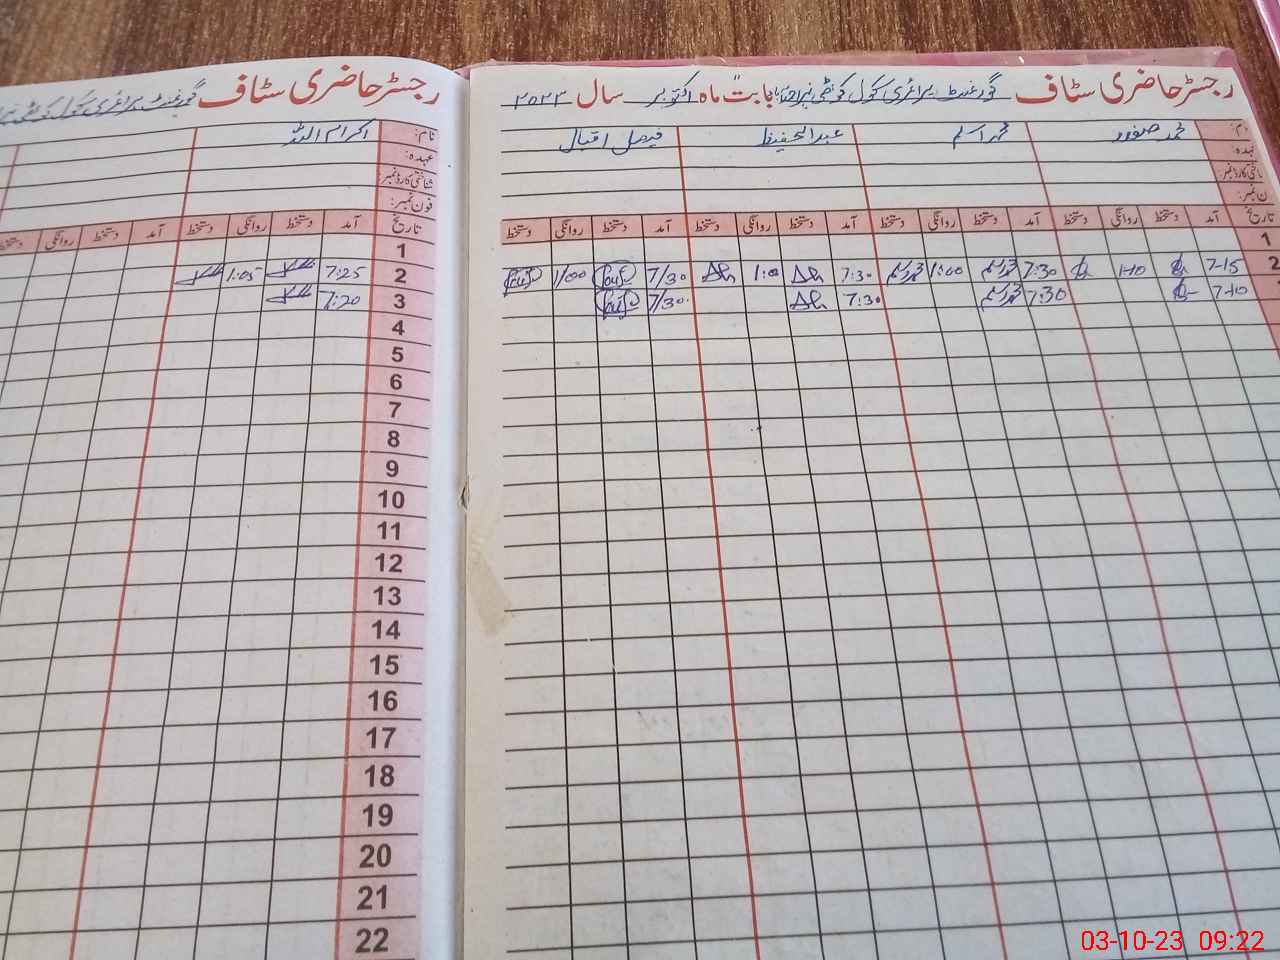 رجسٹر حاضری سٹاف گورنمنٹ پرائمری سکول کوٹھی بابت ماہ اکتوبر سال ۲۰۲۳
نام: محمد صفدر محمد اسلم عبدالحفیظ فیصل اقبال
عہدہ:
شناختی کارڈ نمبر:
فون نمبر:
تاریخ آمد دستخط روانگی دستخط آمد دستخط روانگی دستخط آمد دستخط روانگی دستخط آمد دستخط روانگی دستخط
1
2 7-15 1-10 7:30 محمد اسلم 1:00 محمد اسلم 7:30 1:00 7/30 1/00
7-10 7:30 محمد اسلم 7:30 7/30
رجسٹر حاضری سٹاف گورنمنٹ پرائمری سکول کوٹھی
نام: اکرام اللہ
عہدہ:
شناختی کارڈ نمبر:
فون نمبر:
تاریخ آمد دستخط روانگی دستخط آمد دستخط روانگی دستخط
1
2 7:25 1:05
3 7:20
4
5
6
7
8
9
10
11
12
13
14
15
16
17
18
19
20
21
22
03-10-23 09:22